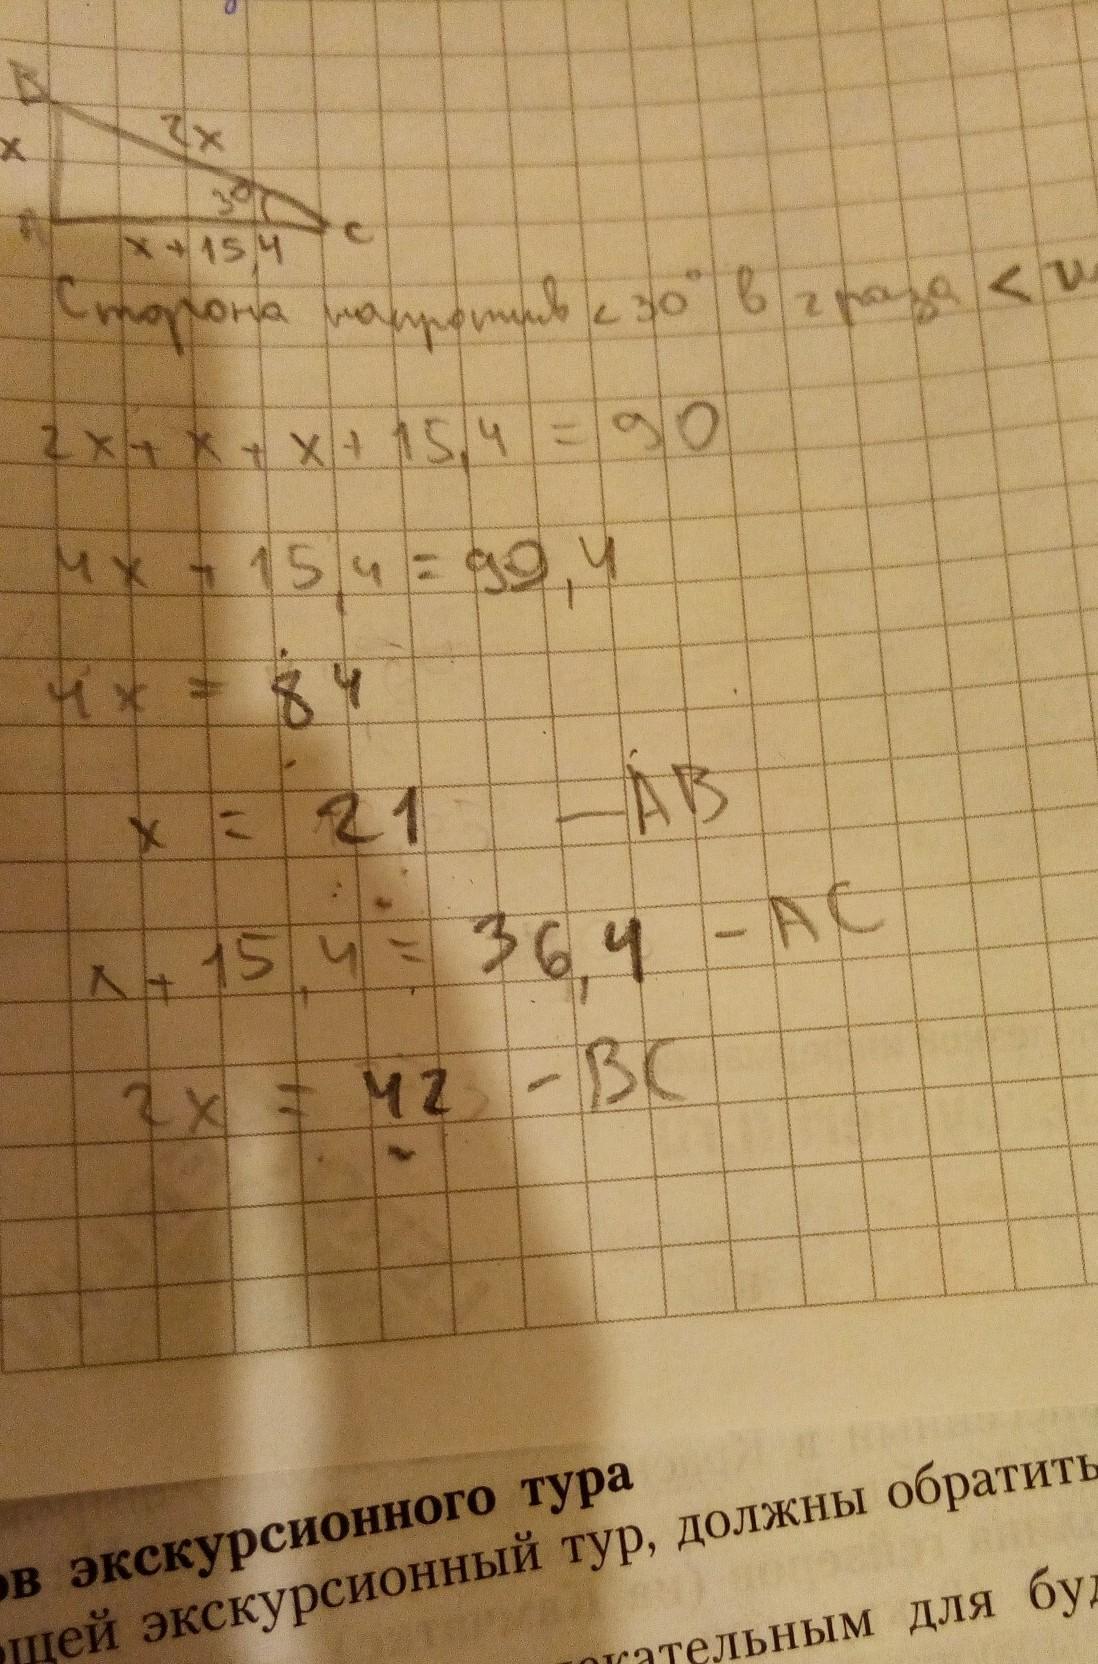 B
2x
x
30
A
C
x + 15,4
Сторона напротив < 30° в 2 раза <
2x + x + x + 15,4 = 90
4x + 15,4 = 99,4
4x = 84
x = 21 — AB
x + 15,4 = 36,4 - AC
2x = 42 - BC
ов экскурсионного тура
ющей экскурсионный тур, должны обратить
лекательным для буд